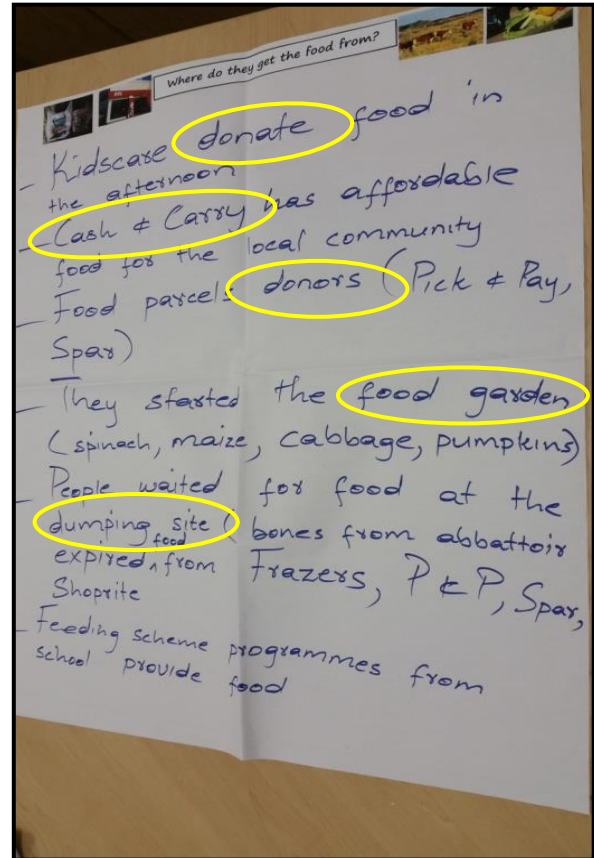 Where do they get the food from?
- Kidscare donate food in
the afternoon
- Cash & Carry has affordable
food for the local community
- Food parcels donors (Pick & Pay,
Spar)
- They started the food garden
(spinach, maize, cabbage, pumpkins)
- People waited for food at the
dumping site (bones from abbattoir
expired ^food from Frazers, P & P, Spar,
Shoprite
- Feeding scheme programmes from
school provide food